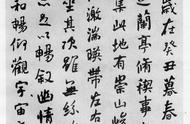 歲在癸丑暮春
之蘭亭脩禊事
集此地有崇山
激湍暎帶左右
坐其次雖無絲
足以暢叙幽情
和暢仰觀宇宙